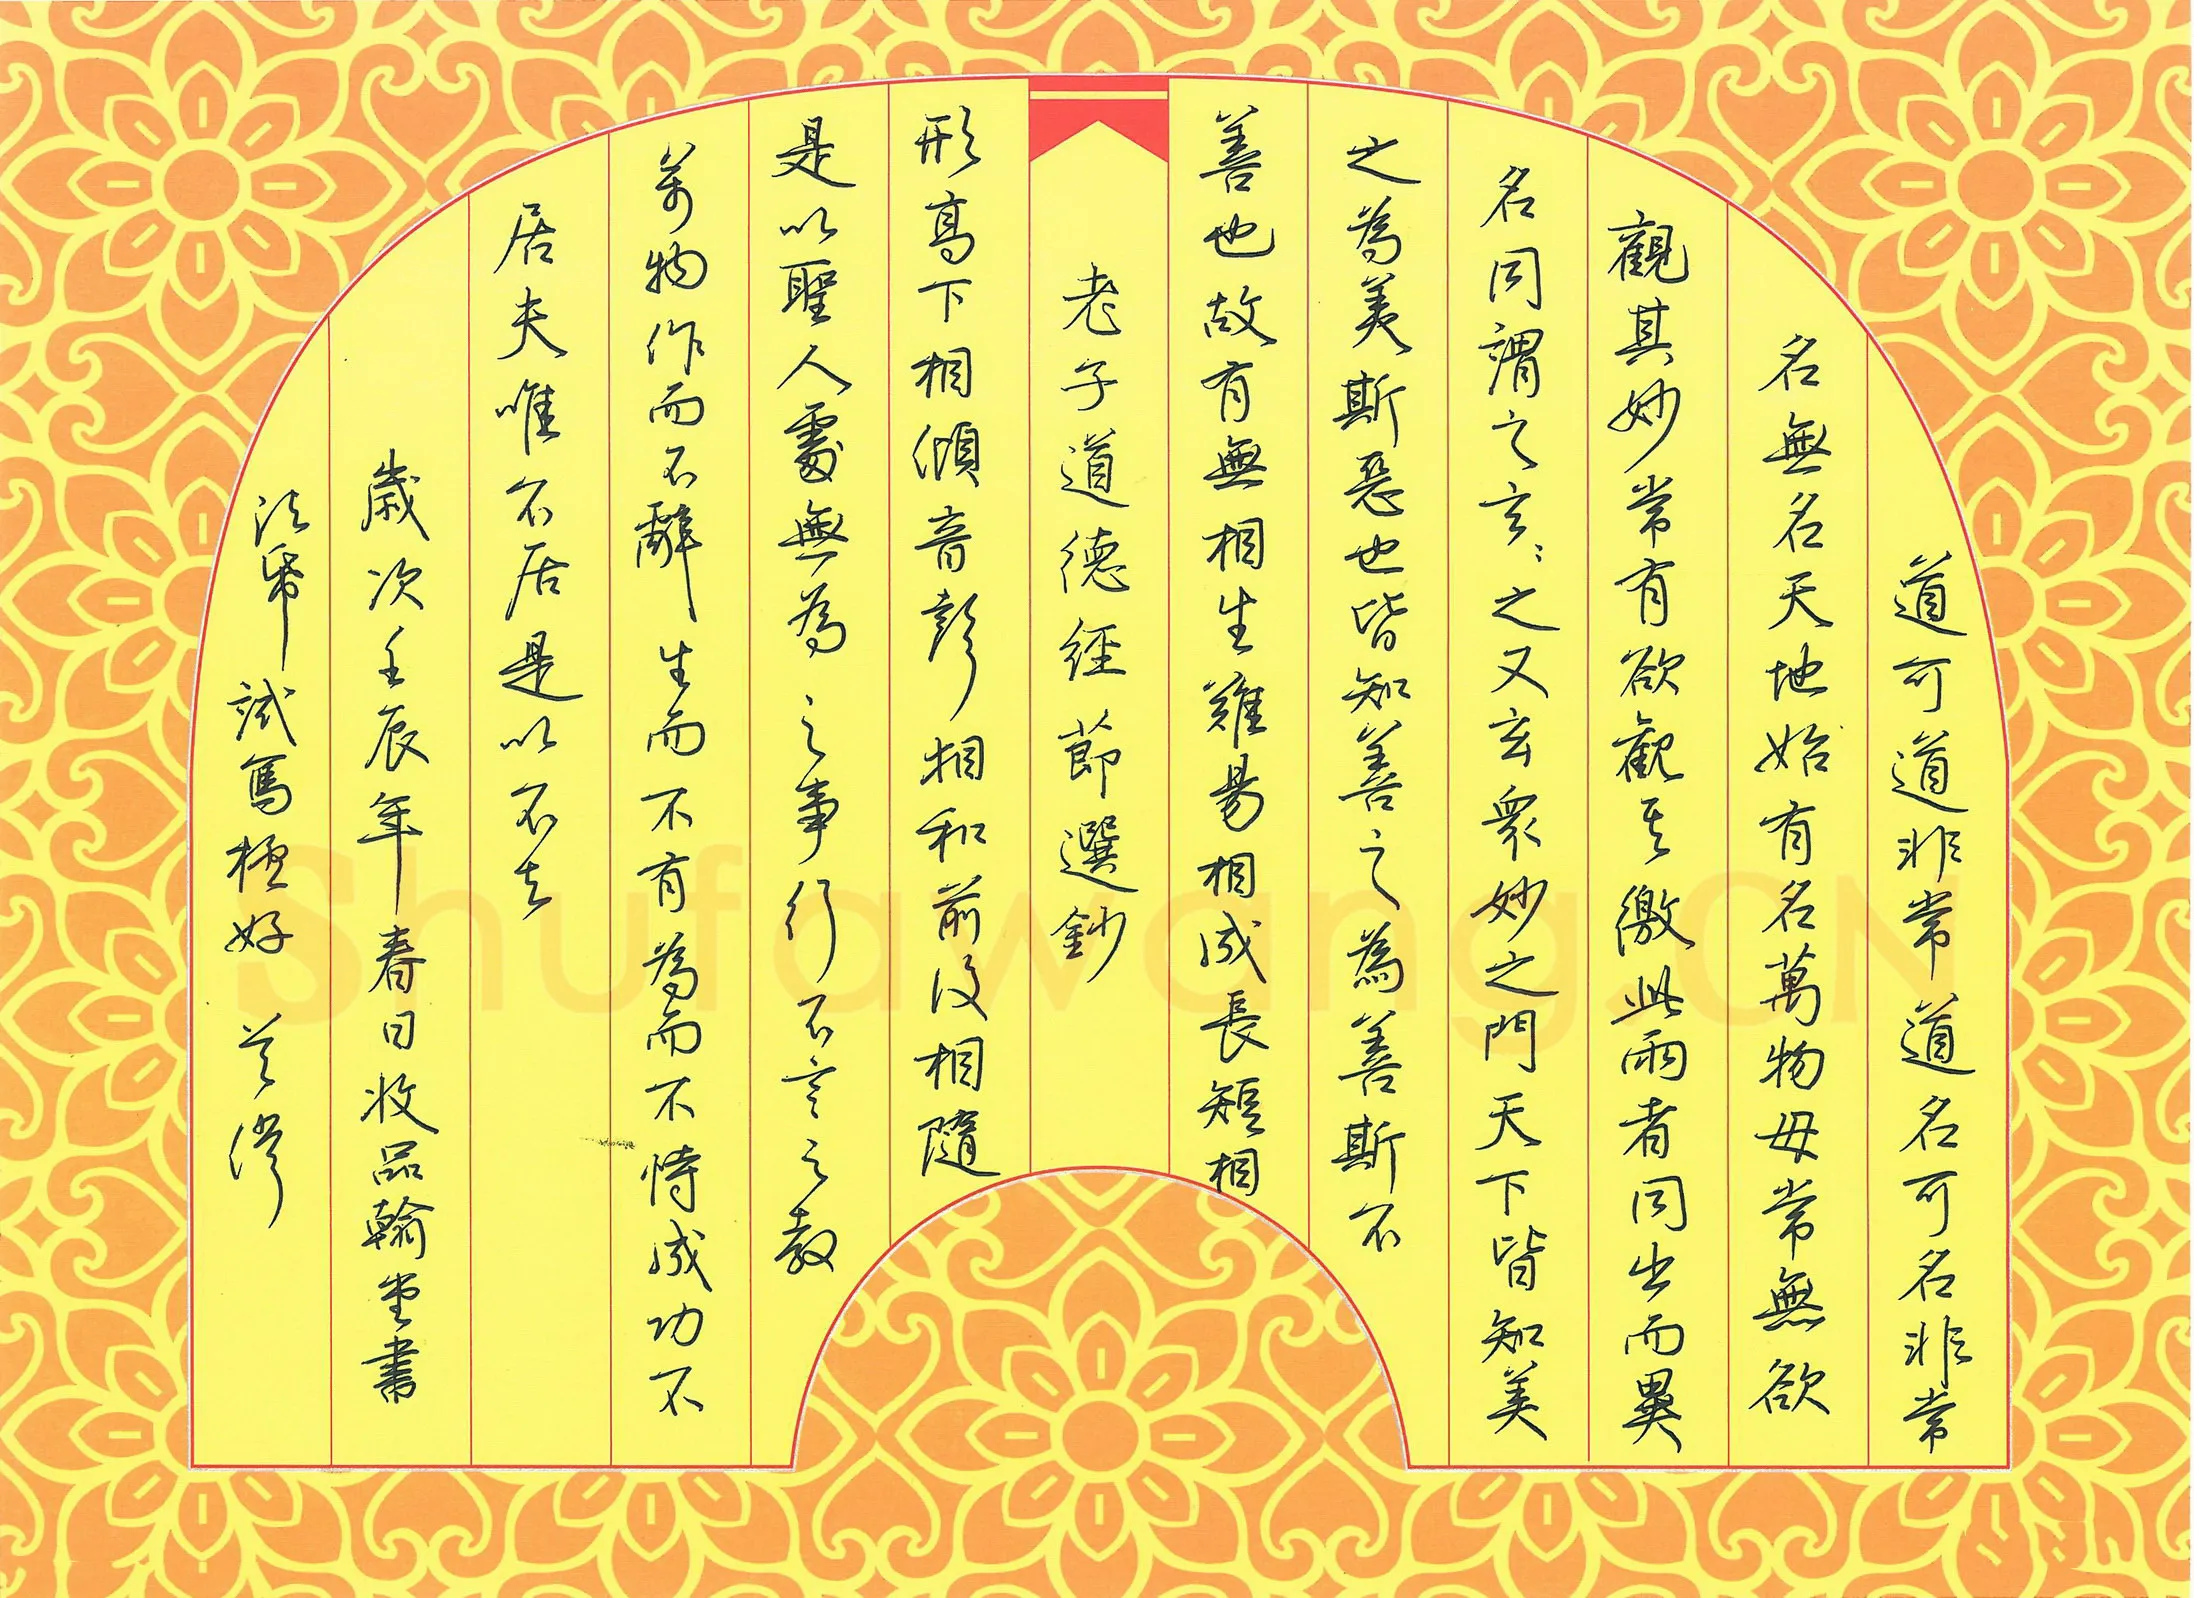 道可道非常道名可名非常
名無名天地始有名萬物母常無欲
觀其妙常有欲觀其徼此兩者同出而異
名同謂之玄:之又玄衆妙之門天下皆知美
之為美斯惡也皆知善之為善斯不
善也故有無相生難易相成長短相
老子道德經節選鈔
形高下相傾音聲相和前後相隨
是以聖人處無為之事行不言之教
萬物作而不辭生而不有為而不恃成功不
居夫唯不居是以不去
歲次壬辰年春日收品翰堂書
法 試寫極好
Shufawang.CN